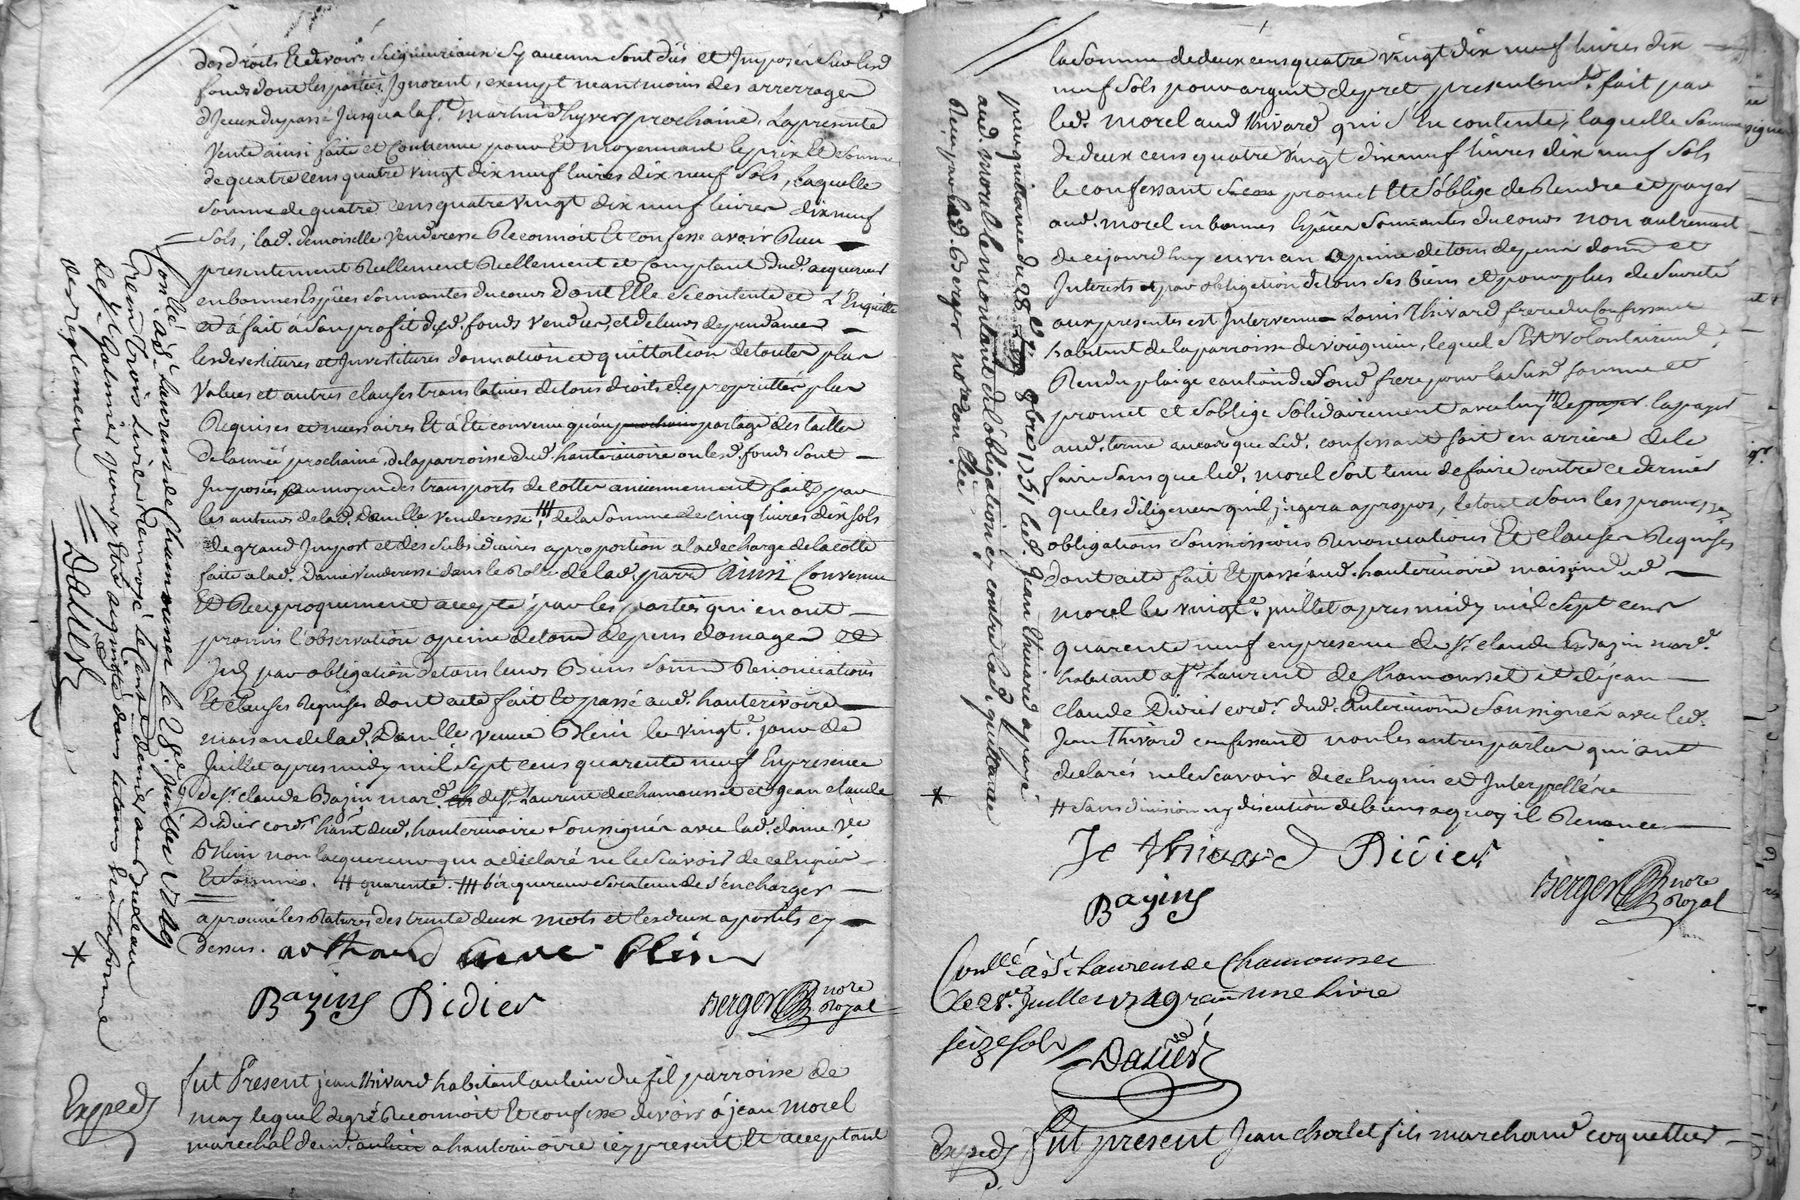 des droits Et devoirs Seigneuriaux Sy aucuns Sont dûs et Imposés Sur lesd
fonds dont les parties Ignorent, exempt neantmoins des arrerages
d'Jceux du passé Jusqua la st martin d'hyver prochaine, La presente
Vente ainsi faite et Convenue pour Et moyennant le prix Et Somme
de quatre cens quatre vingt dix neuf livres dix neuf Sols, Laquelle
Somme de quatre cens quatre vingt dix neuf livres dix neuf
Sols, lad. demoiselle Venderesse Reconnoit Et confesse avoir Reçu
presentement Reellement et Comptant dud. acquereur
en bonnes Espèces Sonnantes du cours dont Elle Se contente et L'En quitte
Et a fait à Son profit desd. fonds vendus, et de leurs dependances
les devestitures et Investitures donnation et quittation de toutes plus
Values et autres clauses translatives de tous droits de proprieté plus
Requises et necessaires Et à Eté convenu qu'au prochain partage des tailles
de l'année prochaine de la parroisse dud. hauterivoire ou lesd. fonds Sont
Imposés au moyen des transports de cottes anciennement faits par
les auteurs de lad. Danlle Venderesse /// de la Somme de cinq livres dix sols
de grand Import et des Subsidiaires a proportion a la decharge de la cotte
faite a lad. Dame Venderesse dans le Rolle de lad. parre Ainsi Convenu
Et Reciproquement accepté par les parties qui en ont
promis l'observation a peine de tous depens domages et
Jnts par obligation de tous leurs Biens Soumis Renonciations
Et clauses Requises dont acte fait Et passé aud. hauterivoire
maison de lad. Danlle veuve Blein le vingte. jour de
Juillet apres midy mil Sept cens quarente neuf En presence
de sr. claude Bazin mard. de st. Laurent de chamousset et jean claude
Didier cordr. hant dud. hauterivoire Soussignés avec lad. dame vve
Blein non l'acquereur qui a déclaré ne le Scavoir de ce Enquis
Et Sommé. # quarente. /// l'acquereur Sera tenu de S'en charger
aprouvé les Ratures des trente deux mots et les deux apostils cy
dessus. arthaud veuve Blein
Bazin Didier Berger nore Royal
Conllé. à st Laurent de Chamousset le 28e. Juillet 1749
Reçu trois Livres Renvoyé le Cent. denier au Bureau
de st. Galmier pour y être aquitté dans le tems Et à la forme
des reglemens Dalier
Expedé
fut Present jean thivard habitant au lieu du fil parroisse de
may lequel de gré Reconnoit Et confesse devoir à jean morel
marechal demt. a hauterivoire icy present Et acceptant
la Somme de deux cens quatre vingt dix neuf livres dix
neuf Sols pour argent de pret presentemt. fait par
led. morel aud thivard qui S'En contente, laquelle Somme
de deux cens quatre vingt dix neuf livres dix neuf Sols
le confessant promet Et S'oblige de Rendre et payer
aud. morel en bonnes Espèces Sonnantes du cours non autrement
de cejourd'huy en un an a peine de tous depens domes et
Interests et par obligation de tous Ses biens et pour plus de Sureté
aux presentes est Intervenu Louis thivard frere du confessant
habitant de la parroisse de virigneu, lequel S'Est volontairemt.
Rendu plaige caution dud. Sond frere pour la Susd. Somme et
promet et S'oblige Solidairement avec luy # de payer la payer
aud. terme au cas que Led. confessant fait en arriere de le
faire Sans que led. morel Soit tenu de faire contre ce dernier
que les diligences qu'il jugera apropos, le tout Sous les promesses
obligations Soumissions Renonciations Et clauses Requises
dont acte fait Et passé aud. hauterivoire maison dud
morel le vingte. juillet apres midy mil Sept cens
quarente neuf en presence de sr. claude Bazin mard.
habitant a st Laurent de Chamousset et de jean
claude Didier cordr. dud. hauterivoire Soussignés avec led.
Jean thivard confessant non les autres parties qui ont
declarés ne le Scavoir de ce Enquis et Interpellés
# Sans division ny discution de biens a quoy il Renonce
Je thivard Didier
Bazin Berger nore Royal
par quittance du 28 8bre 1751 led. Jean thivard a payé
aud. morel le montant de l'obligation cy contre lad. quittance
Reçu par led. Berger nore con llée
Conllé à st Laurent de Chamousset
le 28e. Juillet 1749 reçu une Livre
seize sols Dalier
Expedé fut present Jean chorlet fils marchand coquettier